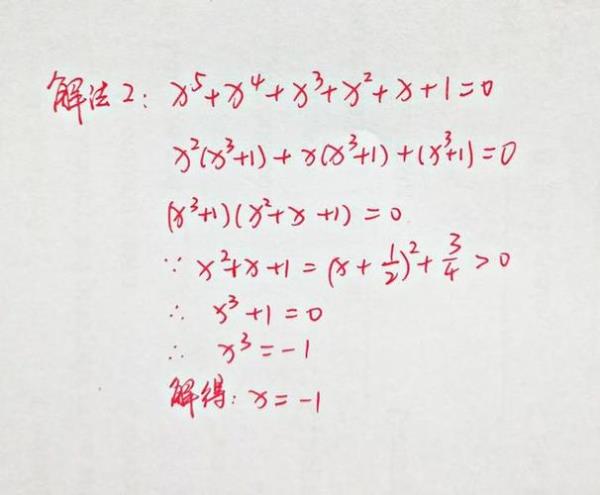 解法2: x⁵+x⁴+x³+x²+x+1=0
x²(x³+1)+x(x³+1)+(x³+1)=0
(x³+1)(x²+x+1)=0
∵ x²+x+1=(x+1/2)²+3/4>0
∴ x³+1=0
∴ x³=-1
解得: x=-1